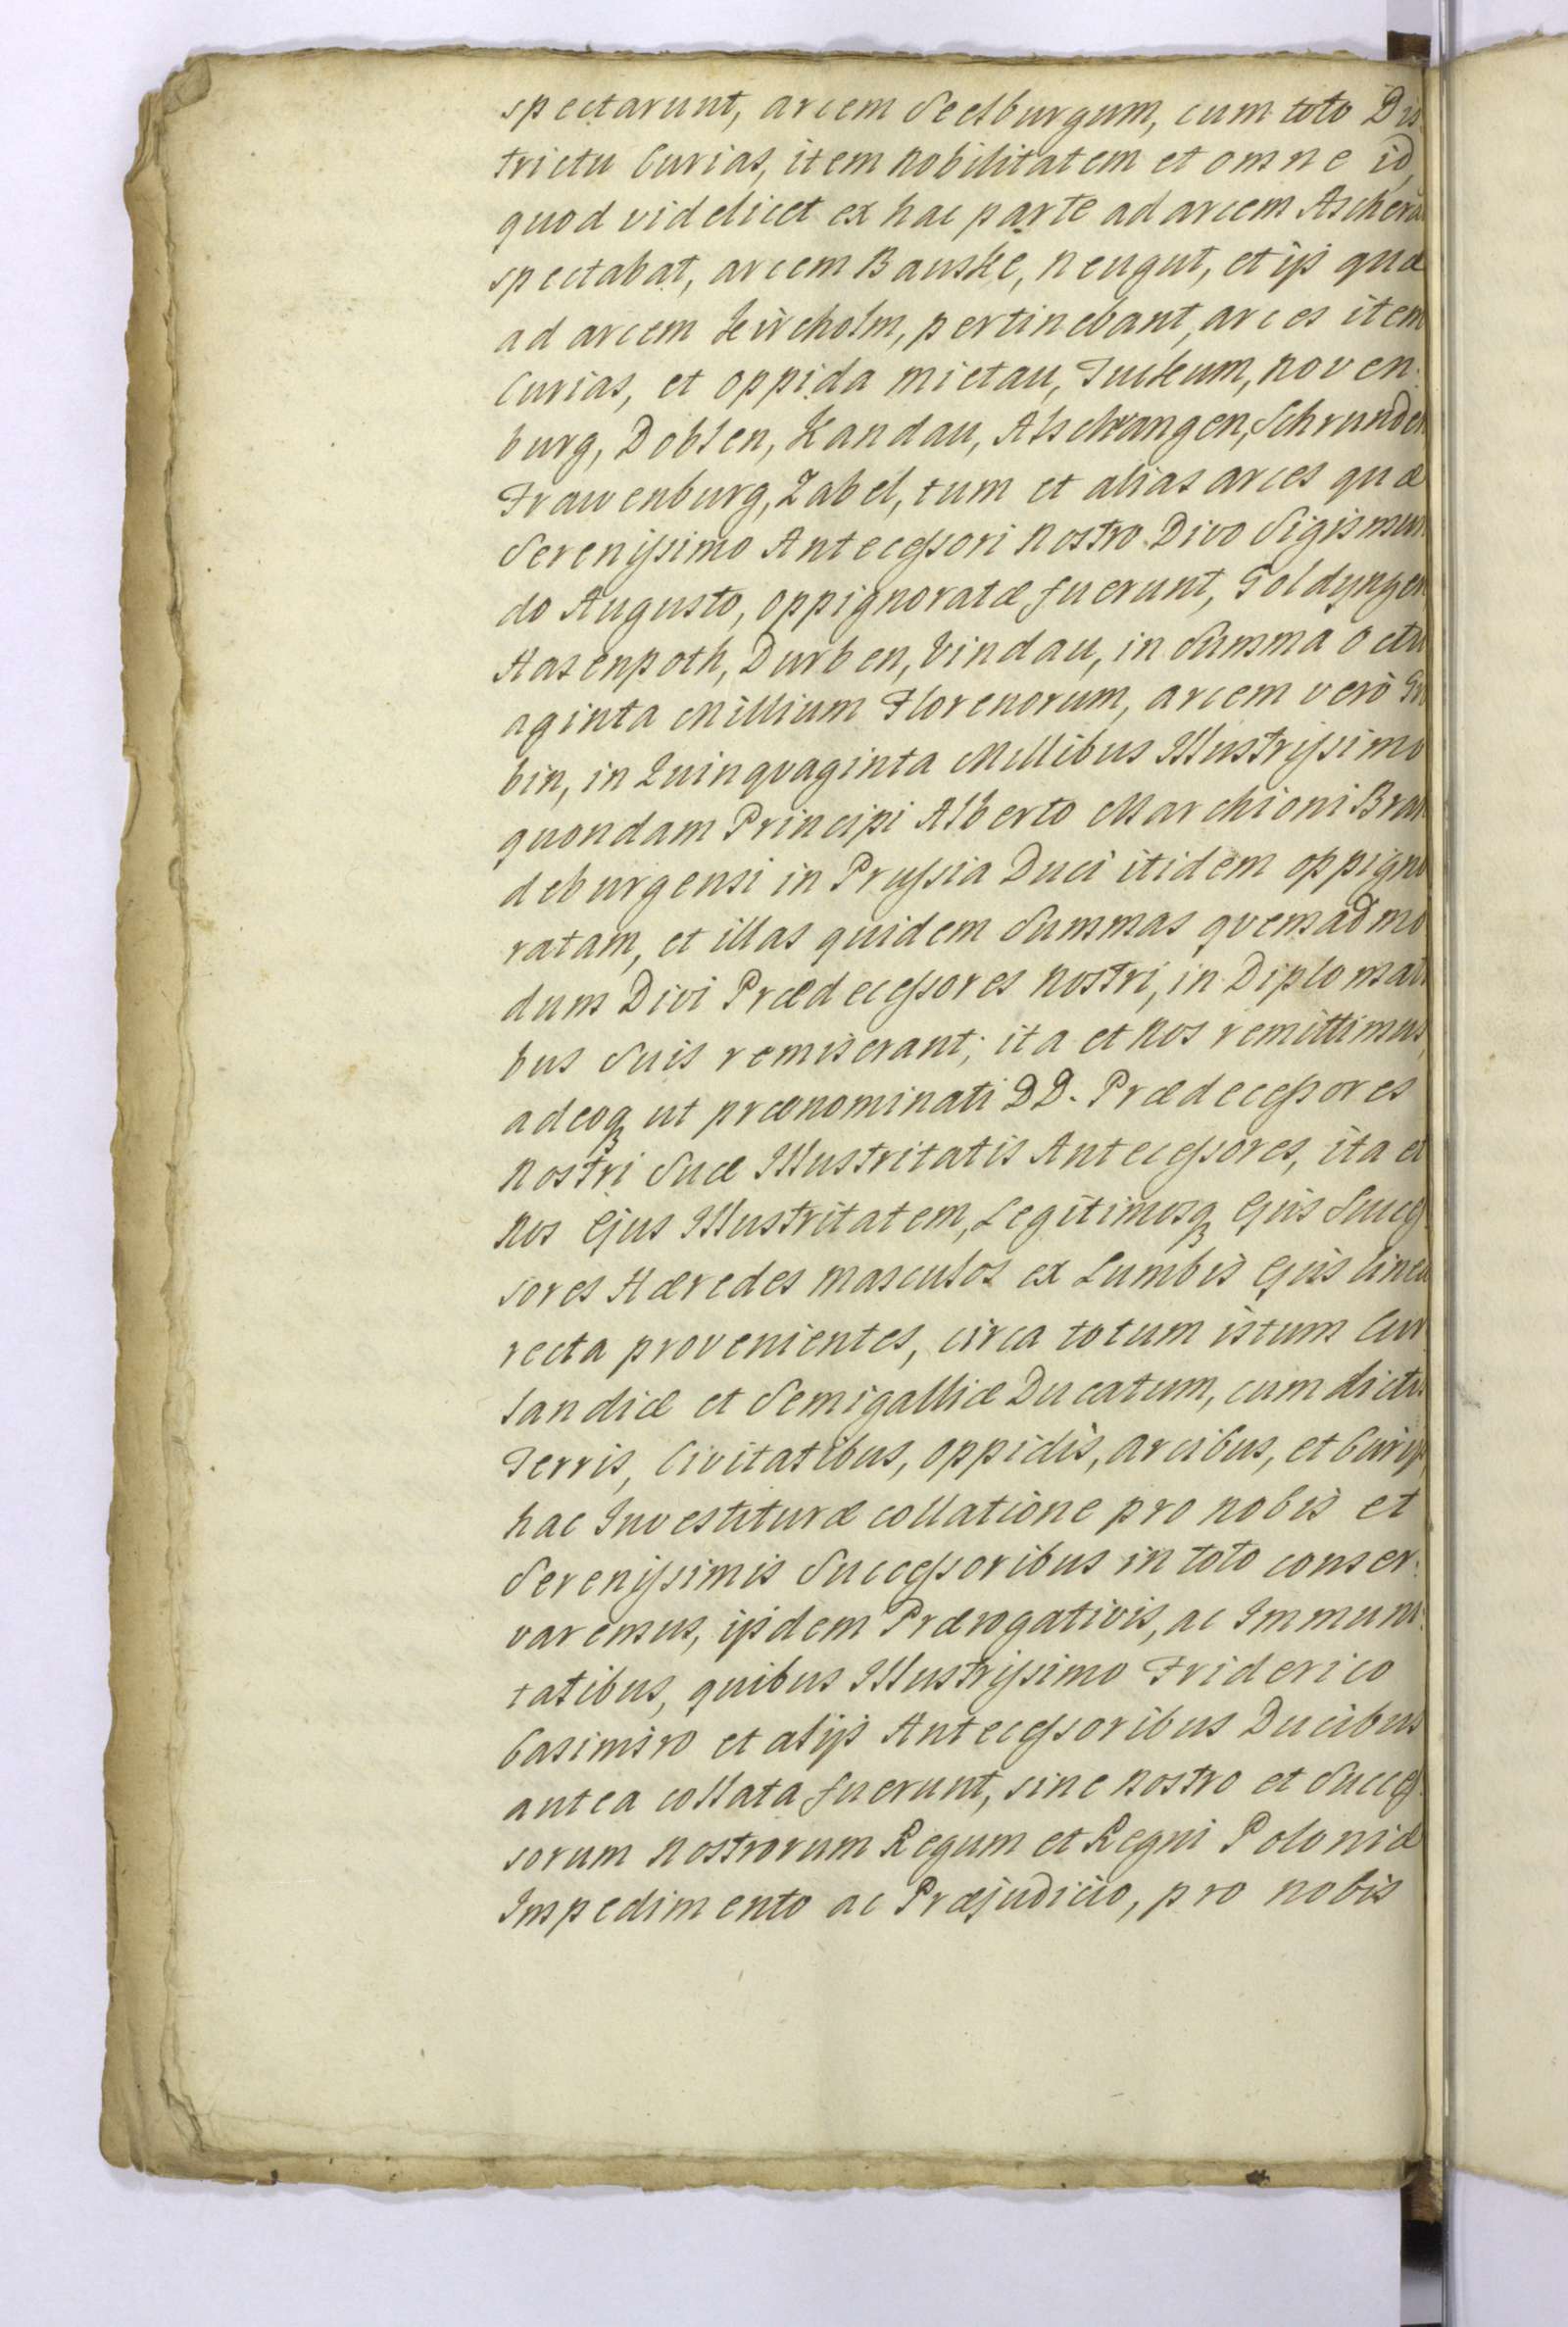 spectarunt, arcem Seelburgum, cum toto Dis
trictu Curias, item Nobilitatem et omne id,
quod videlicet ex hac parte ad arcem Aschera
spectabat, arcem Bauske, Neugut, et ijs quæ
ad arcem Kircholm, pertinebant, arces item
Curias, et oppida Mietau, Tuckum, Noven-
burg, Doblen, Kandau, Alschwangen, Schrunden
Frawenburg, Zabel, tum et alias arces quæ
Serenissimo Antecessori Nostro Divo Sigismun
do Augusto, oppignoratæ fuerunt, Goldyngen
Hasenpoth, Durben, Vindau, in Summa octu
aginta Millium Florenorum, arcem verò Gro
bin, in Quinquaginta Millibus Illustrissimo
quondam Principi Alberto Marchioni Bran
deburgensi in Prussia Duci itidem oppigno
ratam, et illas quidem Summas quemadmo
dum Divi Prædecessores Nostri, in Diplomati
bus Suis remiserant; ita et Nos remittimus,
adeoq ut prænominati DD. Prædecessores
Nostri Suæ Illustritatis Antecessores, ita et
Nos Ejus Illustritatem, Legitimosq Ejus Succes
sores Hæredes masculos ex Lumbis Ejus linea
recta provenientes, circa totum istum Cur
landiæ et Semigalliæ Ducatum, cum dictis
Terris, Civitatibus, oppidis, arcibus, et Curijs,
hac Investituræ collatione pro nobis et
Serenissimis Successoribus in toto conser-
varemus, ijsdem Prærogativis, ac Immuni-
tatibus, quibus Illustrissimo Friderico
Casimiro et alijs Antecessoribus Ducibus
antea collata fuerunt, sine Nostro et Succes
sorum Nostrorum Regum et Regni Poloniæ
Impedimento ac Præjudicio, pro nobis